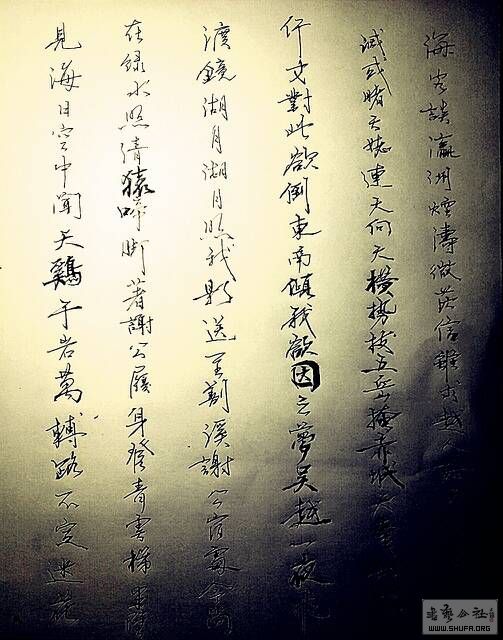 海客談瀛洲煙濤微茫信難求越人
滅或睹天姥連天向天橫勢拔五岳掩赤城天臺
仟丈對此欲倒東南傾我欲因之夢吳越一夜飛
渡鏡湖月湖月照我影送至剡溪謝公宿處今尚
在綠水照清猿啼脚著謝公屐身登青雲梯半壁
見海日空中聞天鷄千岩萬轉路不定迷花
書藝公社
WWW.SHUFA.ORG